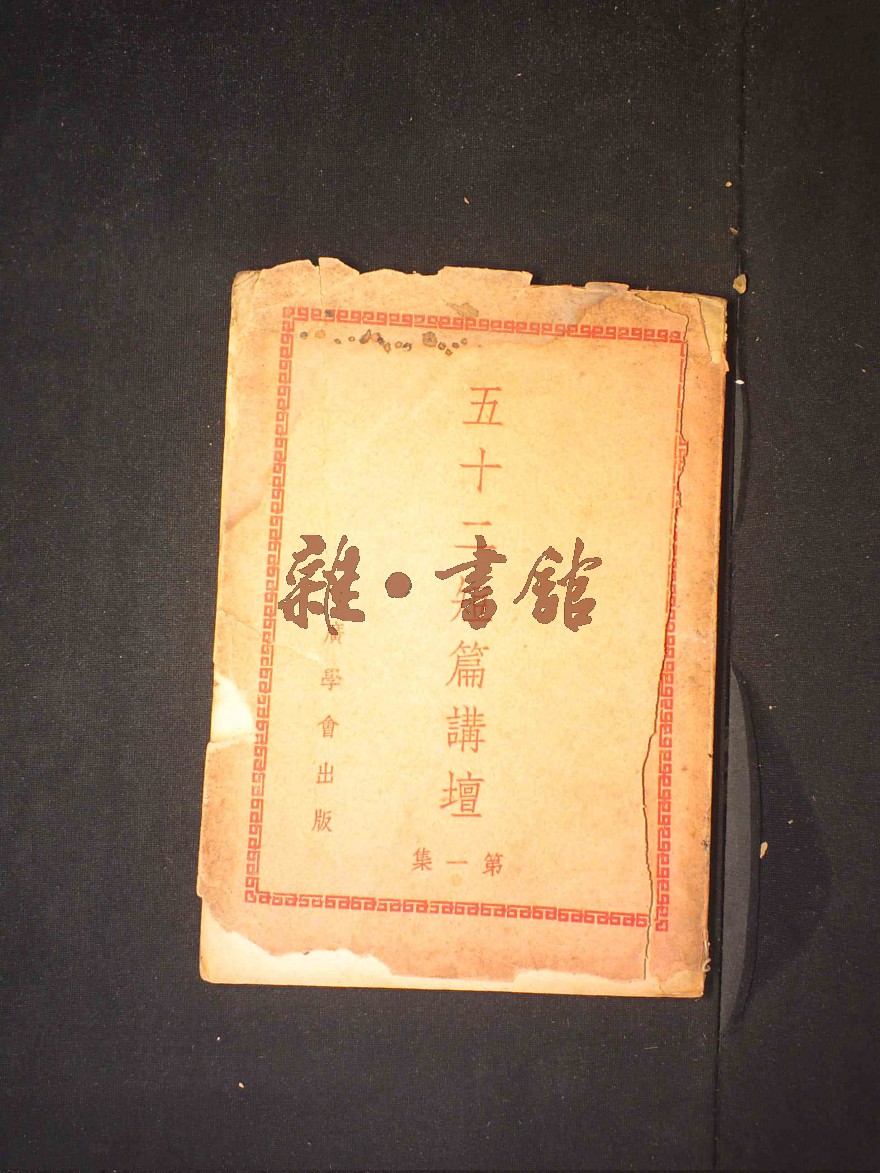 五十二篇講壇
第一集
廣學會出版
雜•書館